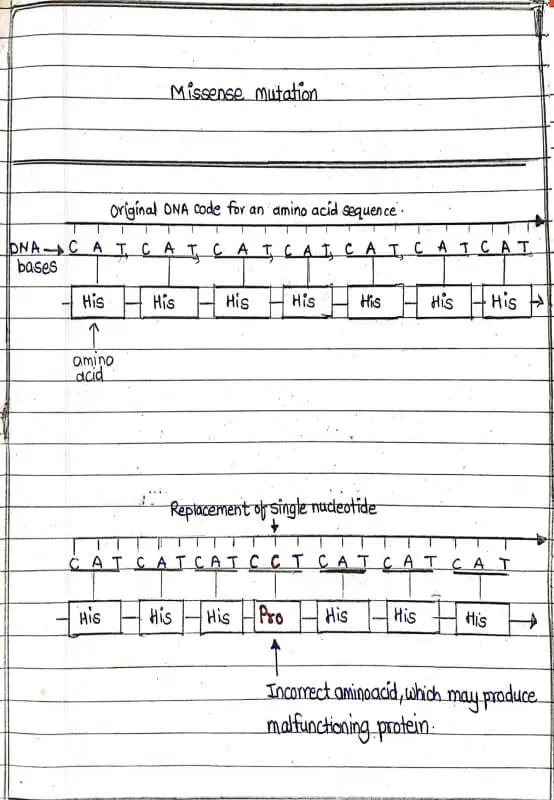 Missense mutation
Original DNA code for an amino acid sequence.
DNA → C A T, C A T, C A T, C A T, C A T, C A T C A T
bases
His His His His His His His
amino
acid
Replacement of single nucleotide
C A T C A T C A T C C T C A T C A T C A T
His His His Pro His His His
Incorrect aminoacid, which may produce
malfunctioning protein.